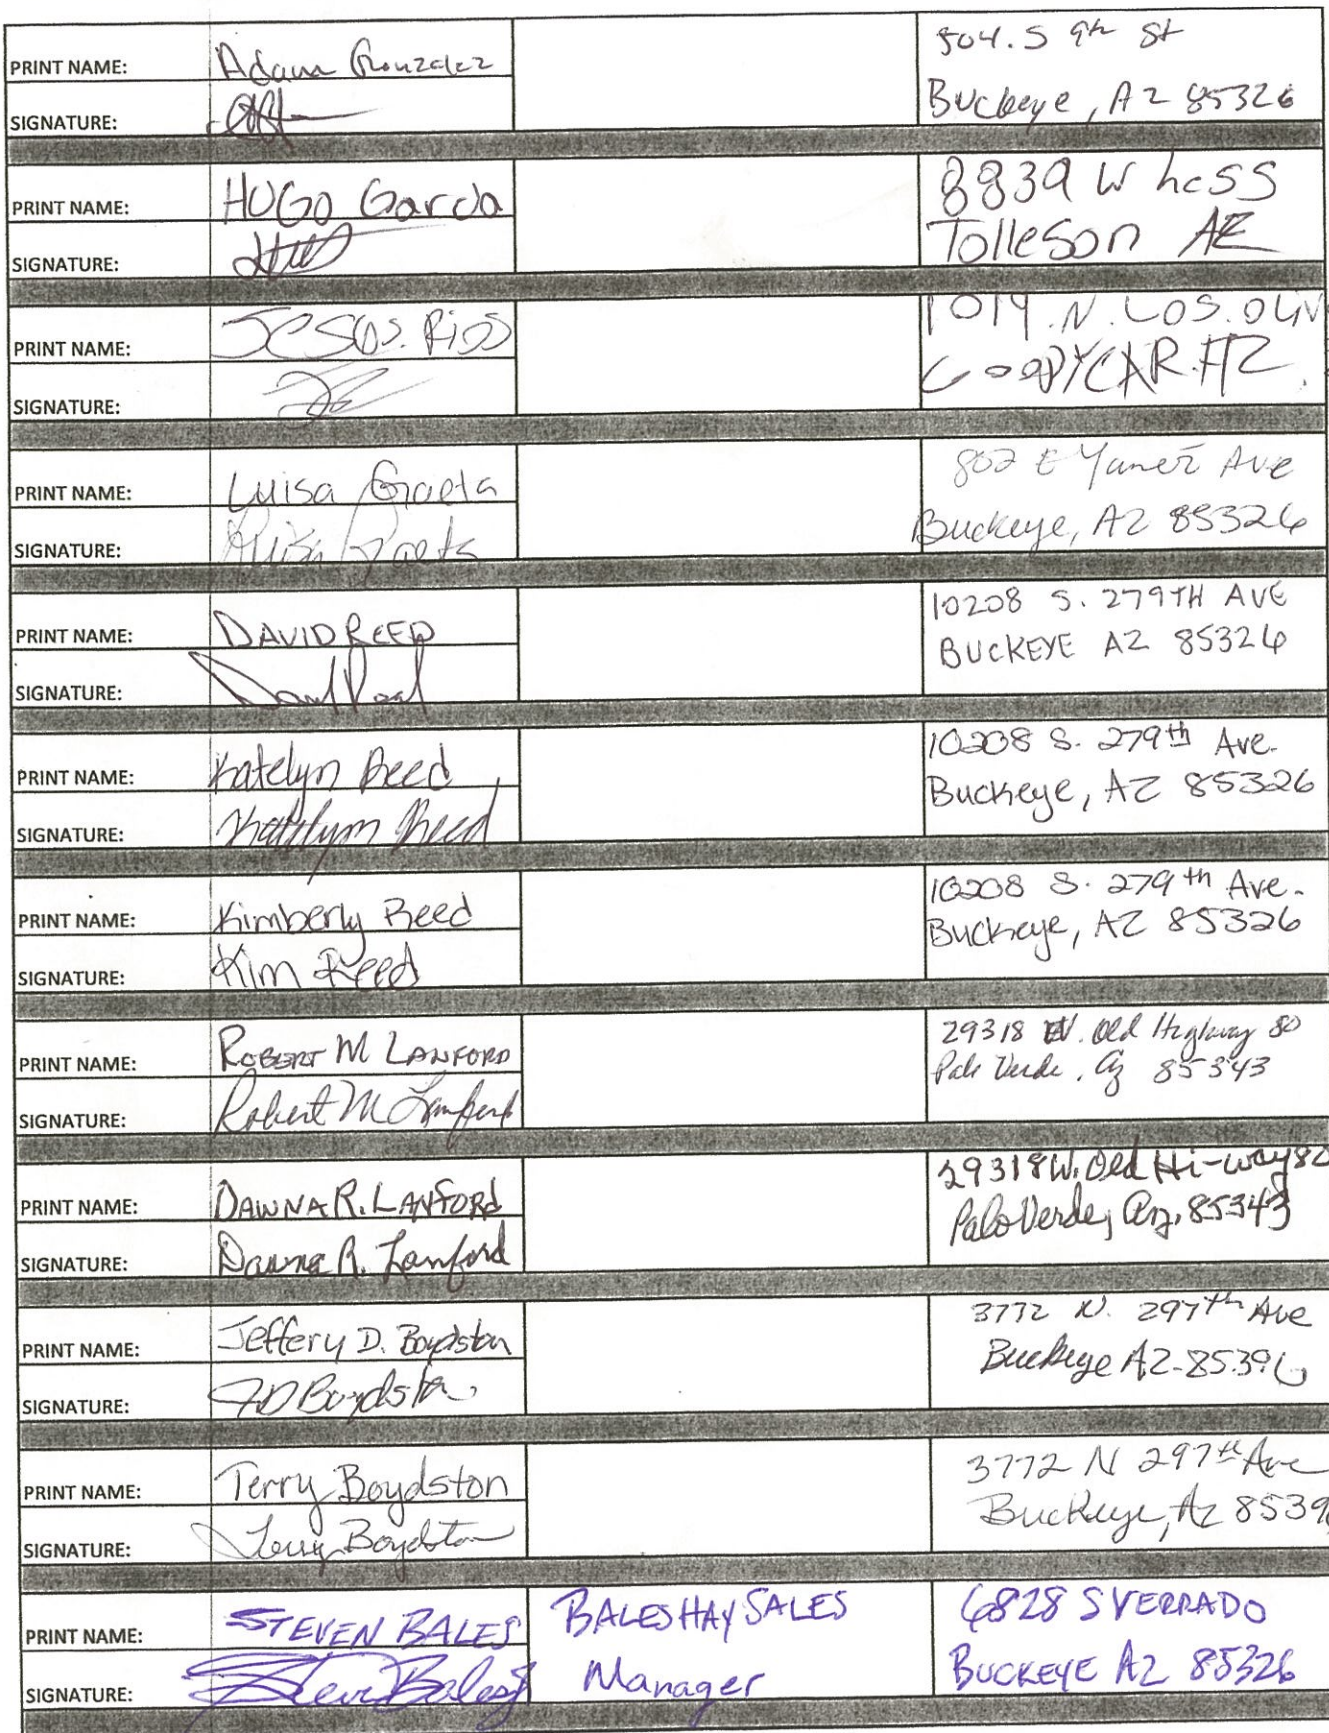 PRINT NAME: Adam Gonzalez 504. S 9th St
Buckeye, AZ 85326
SIGNATURE:
PRINT NAME: HUGo Garcia 8839 W hess
Tolleson AZ
SIGNATURE:
PRINT NAME: JESUS. RIOS 1014. N. LOS. OLIV
GOODYEAR. AZ.
SIGNATURE:
PRINT NAME: Luisa Gaeta 802 E Yanez Ave
Buckeye, AZ 85326
SIGNATURE: Luisa Gaeta
PRINT NAME: DAVID REED 10208 S. 279TH AVE
BUCKEYE AZ 85326
SIGNATURE:
PRINT NAME: Katelyn Reed 10208 S. 279th Ave.
Buckeye, AZ 85326
SIGNATURE: Katelynn Reed
PRINT NAME: Kimberly Reed 10208 S. 279th Ave.
Buckeye, AZ 85326
SIGNATURE: Kim Reed
PRINT NAME: ROBERT M LANFORD 29318 W. Old Highway 80
Palo Verde, Az 85343
SIGNATURE: Robert M Lanford
PRINT NAME: DAWNA R. LANFORD 29318 W. Old Hi-way 80
Palo Verde, Az. 85343
SIGNATURE: Dawna R. Lanford
PRINT NAME: Jeffery D. Boydston 3772 N. 297th Ave
Buckeye AZ-85396
SIGNATURE: JD Boydston
PRINT NAME: Terry Boydston 3772 N 297th Ave
Buckeye, Az 8539
SIGNATURE: Terry Boydston
PRINT NAME: STEVEN BALES BALES HAY SALES 6828 S VERRADO
SIGNATURE: Steve Bales Manager BUCKEYE AZ 85326